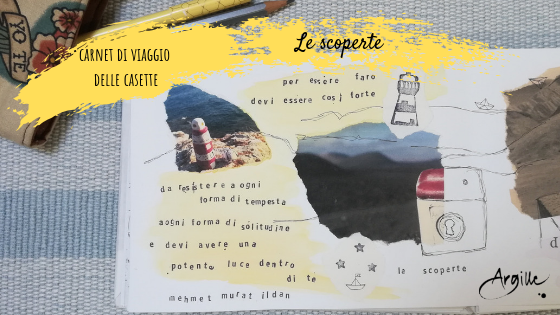 YO TE
CARNET DI VIAGGIO
DELLE CASETTE
Le scoperte
per essere faro
devi essere così forte
da resistere a ogni
forma di tempesta
a ogni forma di solitudine
e devi avere una
potente luce dentro
di te
mehmet murat ildan
le scoperte
Argille
d